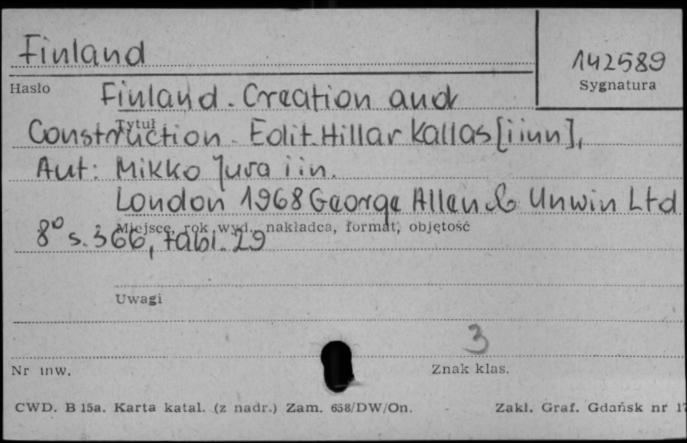 Finland
142589
Hasło
Sygnatura
Finland. Creation and
Tytuł
Construction. Edit. Hillar Kallas [i inn],
Aut: Mikko Juva i in.
London 1968 George Allen & Unwin Ltd
Miejsce, rok wyd., nakładca, format, objętość
8° s. 366, tabl. 29
Uwagi
3
Nr inw.
Znak klas.
CWD. B 15a. Karta katal. (z nadr.) Zam. 658/DW/On.
Zakł. Graf. Gdańsk nr 17